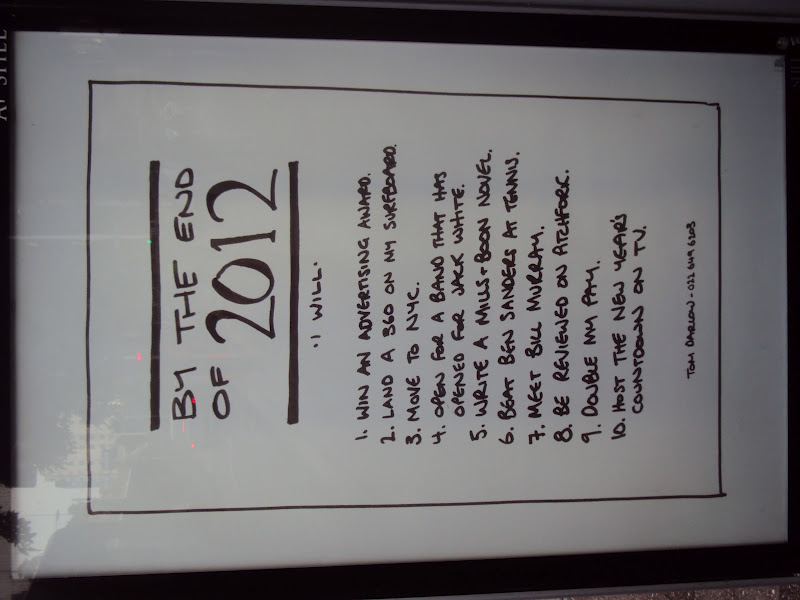 BY THE END
OF 2012
"I WILL"
1. WIN AN ADVERTISING AWARD.
2. LAND A 360 ON MY SURFBOARD.
3. MOVE TO NYC.
4. OPEN FOR A BAND THAT HAS
OPENED FOR JACK WHITE.
5. WRITE A MILLS+BOON NOVEL.
6. BEAT BEN SANDERS AT TENNIS.
7. MEET BILL MURRAY.
8. BE REVIEWED ON PITCHFORK.
9. DOUBLE MY PAY.
10. HOST THE NEW YEAR'S
COUNTDOWN ON TV.
TOM DARLOW - 022 649 6203